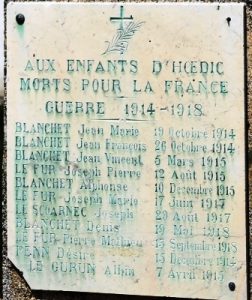 AUX ENFANTS D'HŒDIC
MORTS POUR LA FRANCE
GUERRE 1914-1918
BLANCHET Jean Marie 19 Octobre 1914
BLANCHET Jean François 26 Octobre 1914
BLANCHET Jean Vincent 5 Mars 1915
LE FUR Joseph Pierre 12 Août 1915
BLANCHET Alphonse 10 Décembre 1915
LE FUR Joseph Marie 17 Juin 1917
LE SCOARNEC Joseph 20 Août 1917
BLANCHET Denis 19 Mai 1918
LE FUR Pierre 15 Septembre 1918
Désiré 15 Décembre 1914
LE GURUN 7 Avril 1915